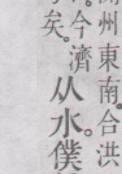 州東南。合洪
。今濟
矣。
从水。僕